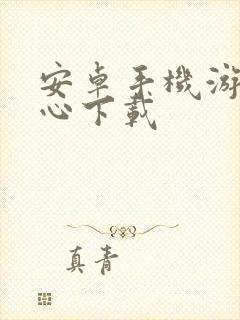 安卓手機游
心下載
真青